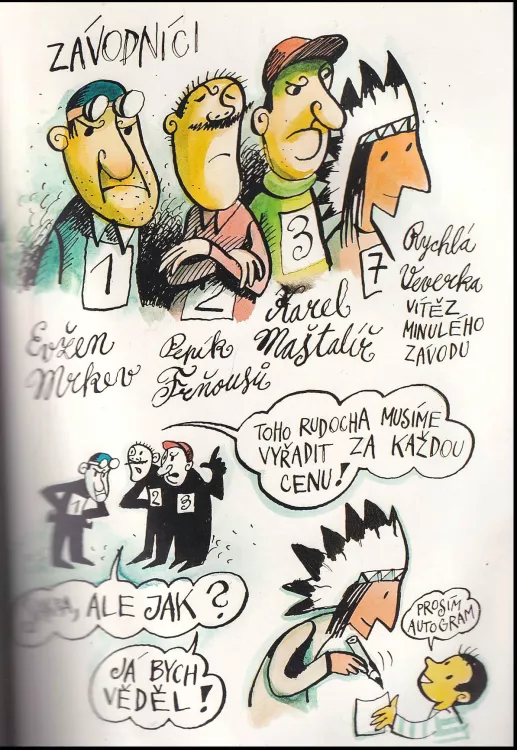 ZÁVODNÍCI
1
2
3
7
Evžen
Mrkev
Pepík
Frňousů
Karel
Maštalíř
Rychlá
Veverka
VÍTĚZ
MINULÉHO
ZÁVODU
TOHO RUDOCHA MUSÍME
VYŘADIT ZA KAŽDOU
CENU!
1
2
3
ALE JAK?
JÁ BYCH
VĚDĚL!
PROSÍM
AUTOGRAM